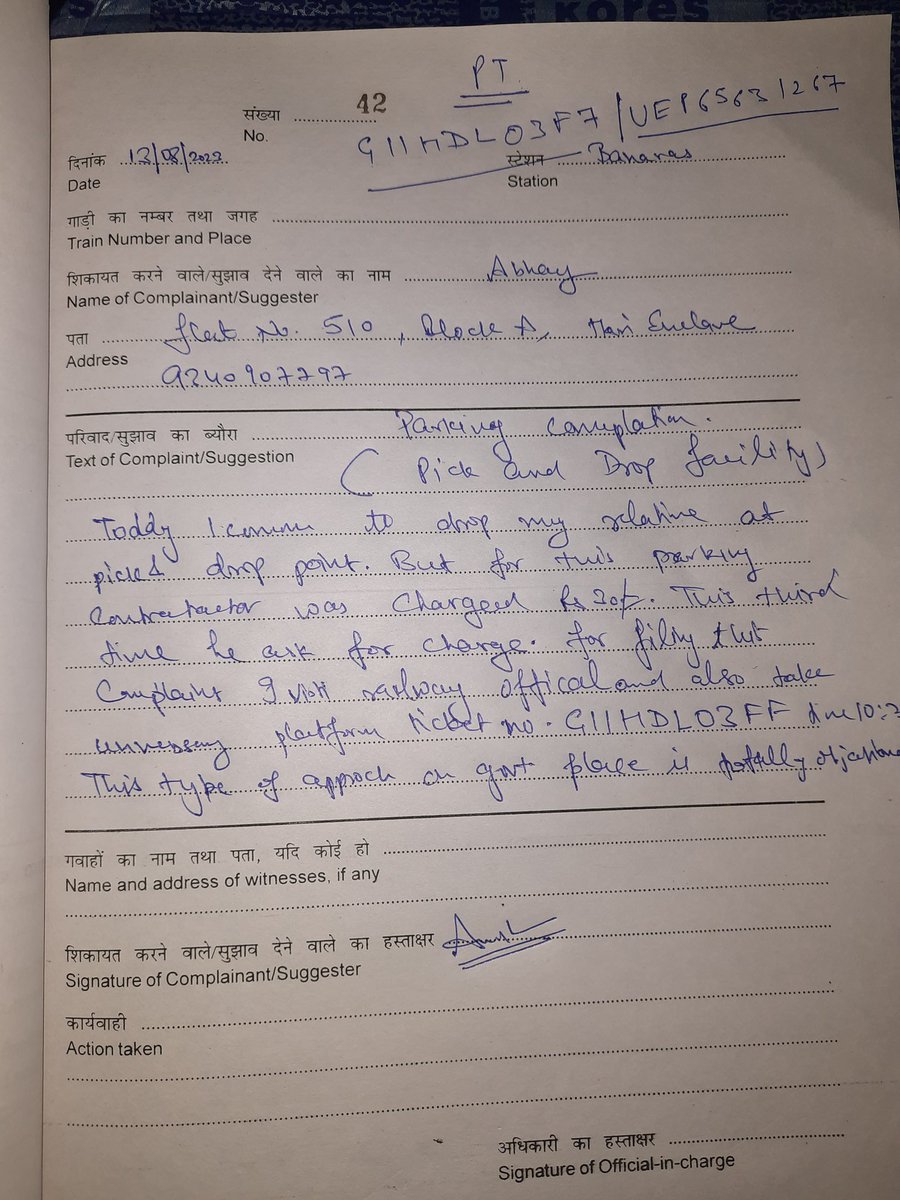 KORES
PT
संख्या ................ 42
No.
G11HDL03F7 / UEP65631267
दिनांक 13/08/2022 स्टेशन Banaras
Date Station
गाड़ी का नम्बर तथा जगह
Train Number and Place
शिकायत करने वाले/सुझाव देने वाले का नाम Abhay
Name of Complainant/Suggester
पता Flat No. 510, Block A, Hari Enclave
Address
9240907797
परिवाद/सुझाव का ब्यौरा Parking
Text of Complaint/Suggestion
( Pick and Drop facility)
Today I comm to drop my relative at
pick & drop point. But for this parking
Contratactor was Chargeed Rs 20/-. This third
time he ask for charge. for filiy this
Complaint I visit railway offical and also take
platform ticket no. G11HDL03FF time 10:
This type of approch on govt place is
गवाहों का नाम तथा पता, यदि कोई हो
Name and address of witnesses, if any
शिकायत करने वाले/सुझाव देने वाले का हस्ताक्षर
Signature of Complainant/Suggester
कार्यवाही
Action taken
अधिकारी का हस्ताक्षर
Signature of Official-in-charge